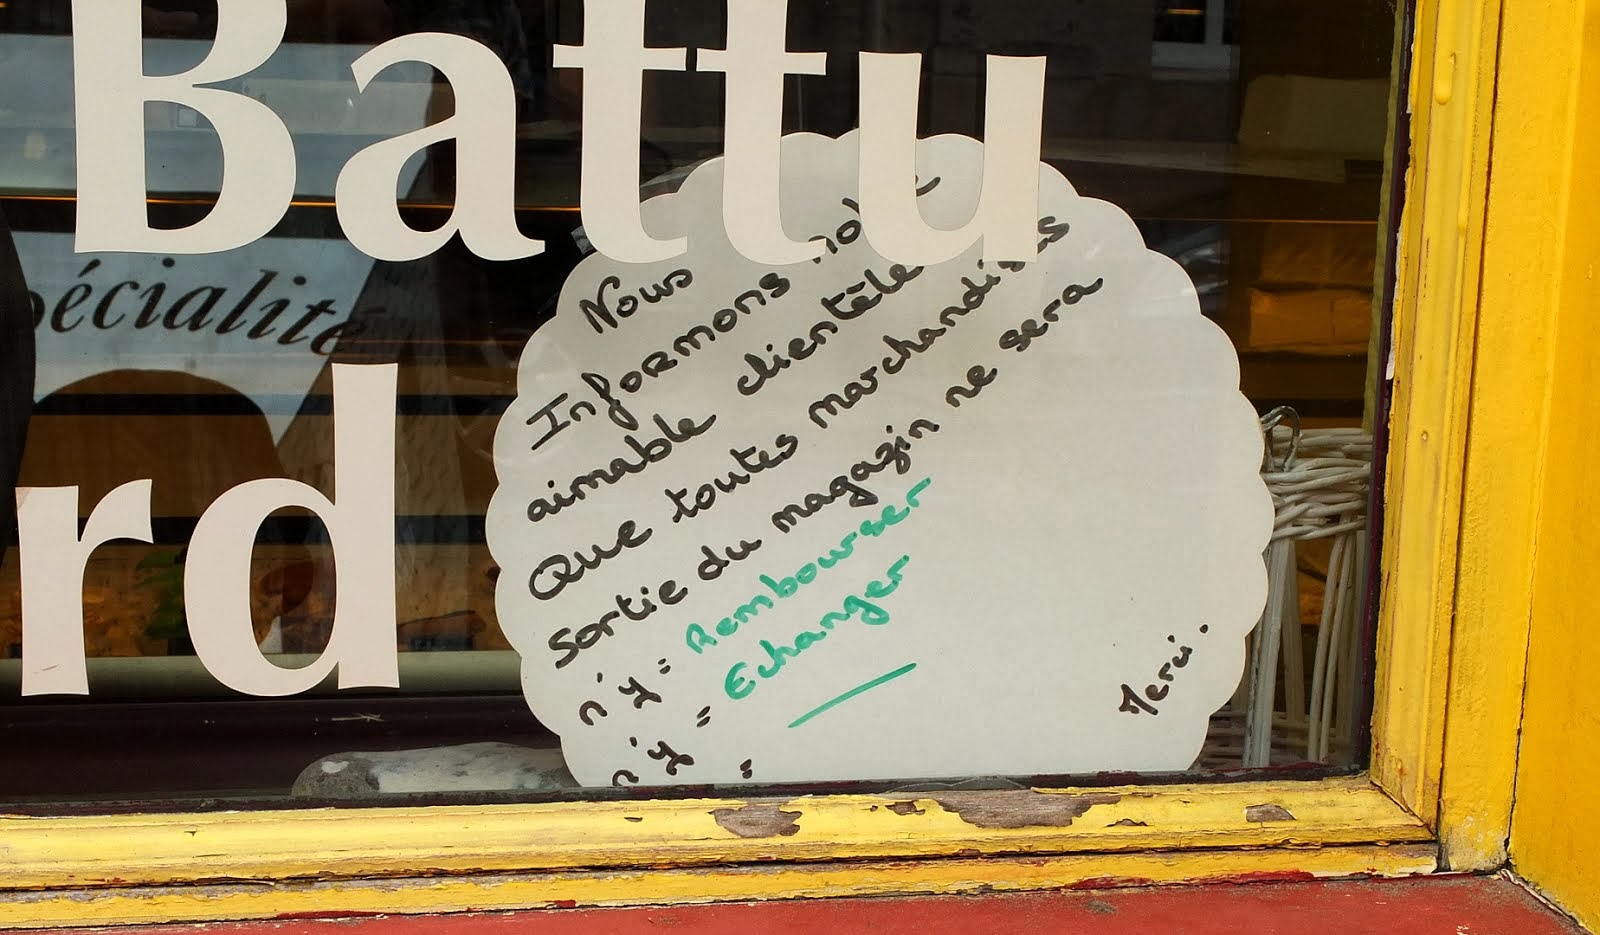 Battu
pécialité
rd
Nous
Informons notre
aimable clientèle
Que toutes marchandises
Sortie du magazin ne sera
n'y = Rembourser
n'y = Echanger
=
Merci.